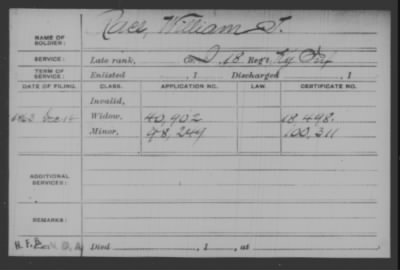 NAME OF SOLDIER: Race, William S.
SERVICE: Late rank, Co. D, 18 Reg't Ky Inf
TERM OF SERVICE: Enlisted , 1 Discharged , 1
DATE OF FILING. CLASS. APPLICATION NO. LAW. CERTIFICATE NO.
Invalid,
1862 Dec 15 Widow, 40,902 18,498.
Minor, 98,244 100,311
ADDITIONAL SERVICES:
REMARKS:
Died , 1 , at